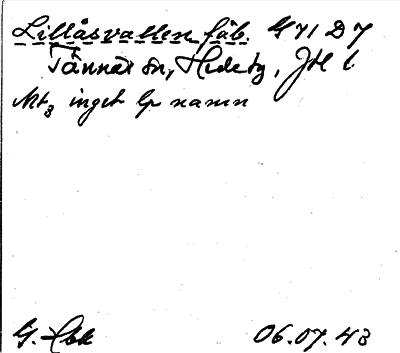 Lillåsvallen fäb. G 41 D 7
Tännäs sn, Hede tg, JH l.
Mt3 inget lp namn
06.07.43